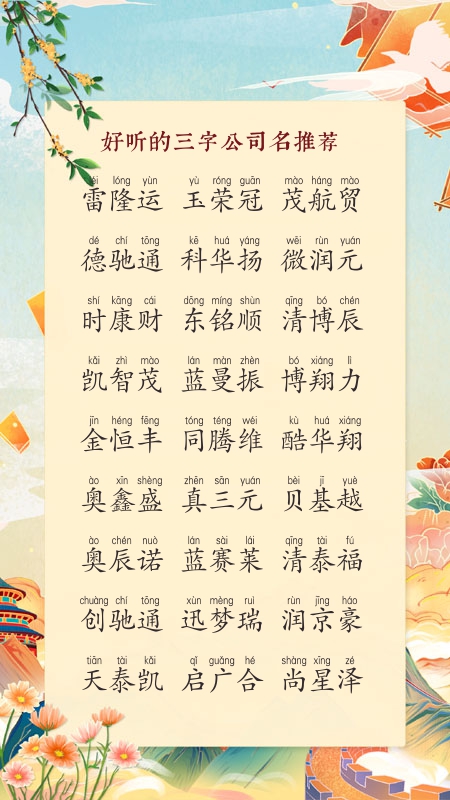 好听的三字公司名推荐
léi lóng yùn yù róng guān mào háng mào
雷隆运 玉荣冠 茂航贸
dé chí tōng kē huá yáng wēi rùn yuán
德驰通 科华扬 微润元
shí kāng cái dōng míng shùn qīng bó chén
时康财 东铭顺 清博辰
kǎi zhì mào lán màn zhèn bó xiáng lì
凯智茂 蓝曼振 博翔力
jīn héng fēng tóng téng wéi kù huá xiáng
金恒丰 同腾维 酷华翔
ào xīn shèng zhēn sān yuán bèi jī yuè
奥鑫盛 真三元 贝基越
ào chén nuò lán sài lái qīng tài fú
奥辰诺 蓝赛莱 清泰福
chuàng chí tōng xùn mèng ruì rùn jīng háo
创驰通 迅梦瑞 润京豪
tiān tài kǎi qǐ guǎng hé shàng xīng zé
天泰凯 启广合 尚星泽